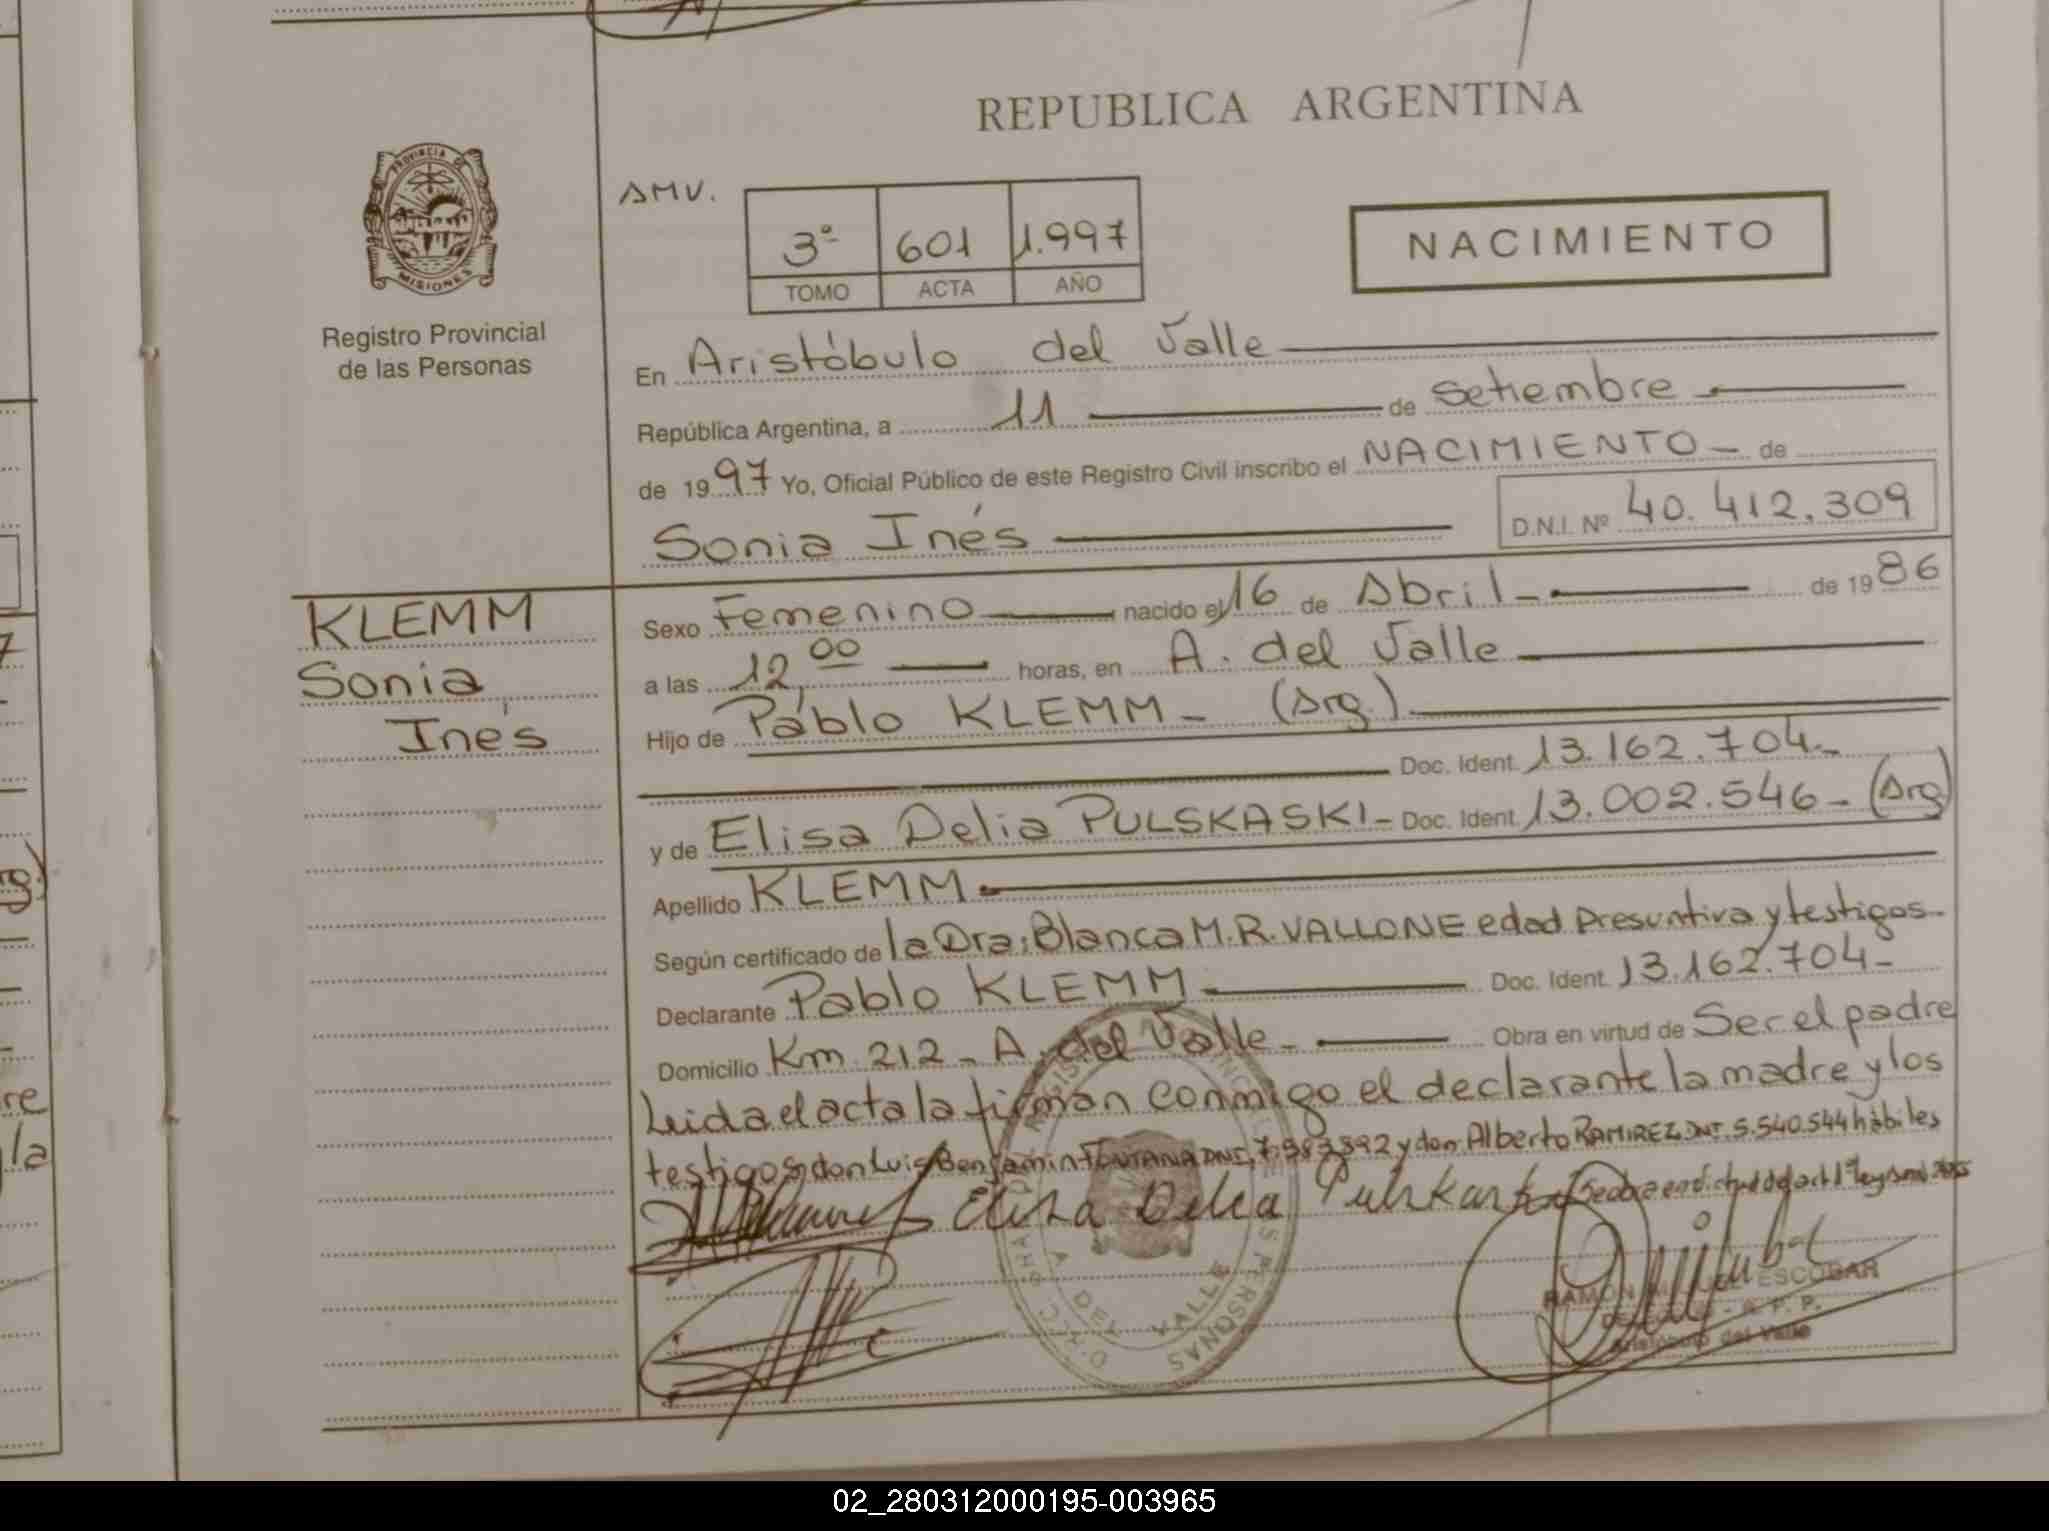 REPUBLICA ARGENTINA
PROVINCIA DE
MISIONES
Registro Provincial
de las Personas
AMV.
3º 601 1.997
TOMO ACTA AÑO
NACIMIENTO
En Aristóbulo del Valle
República Argentina, a 11 de Setiembre
de 1997 Yo, Oficial Público de este Registro Civil inscribo el NACIMIENTO - de
Sonia Inés D.N.I. Nº 40.412.309
KLEMM
Sonia
Inés
Sexo Femenino nacido el 16 de Abril - de 1986
a las 12,00 horas, en A. del Valle
Hijo de Pablo KLEMM - (Arg.)
Doc. Ident. 13.162.704-
y de Elisa Delia PULSKASKI - Doc. Ident. 13.002.546 - (Arg)
Apellido KLEMM
Según certificado de la Dra: Blanca M.R. VALLONE edad presuntiva y testigos-
Declarante Pablo KLEMM Doc. Ident. 13.162.704-
Domicilio Km 212 - A. del Valle - Obra en virtud de Ser el padre
Leida el acta la firman conmigo el declarante la madre y los
testigos don Luis Benjamin FONTANA DNI. 7.983.892 y don Alberto RAMIREZ DNI. 5.540.544 hábiles
Elisa Delia
A DEL VALLE
RAMON ESCOBAR
R. P. P.
Aristóbulo del Valle
02_280312000195-003965